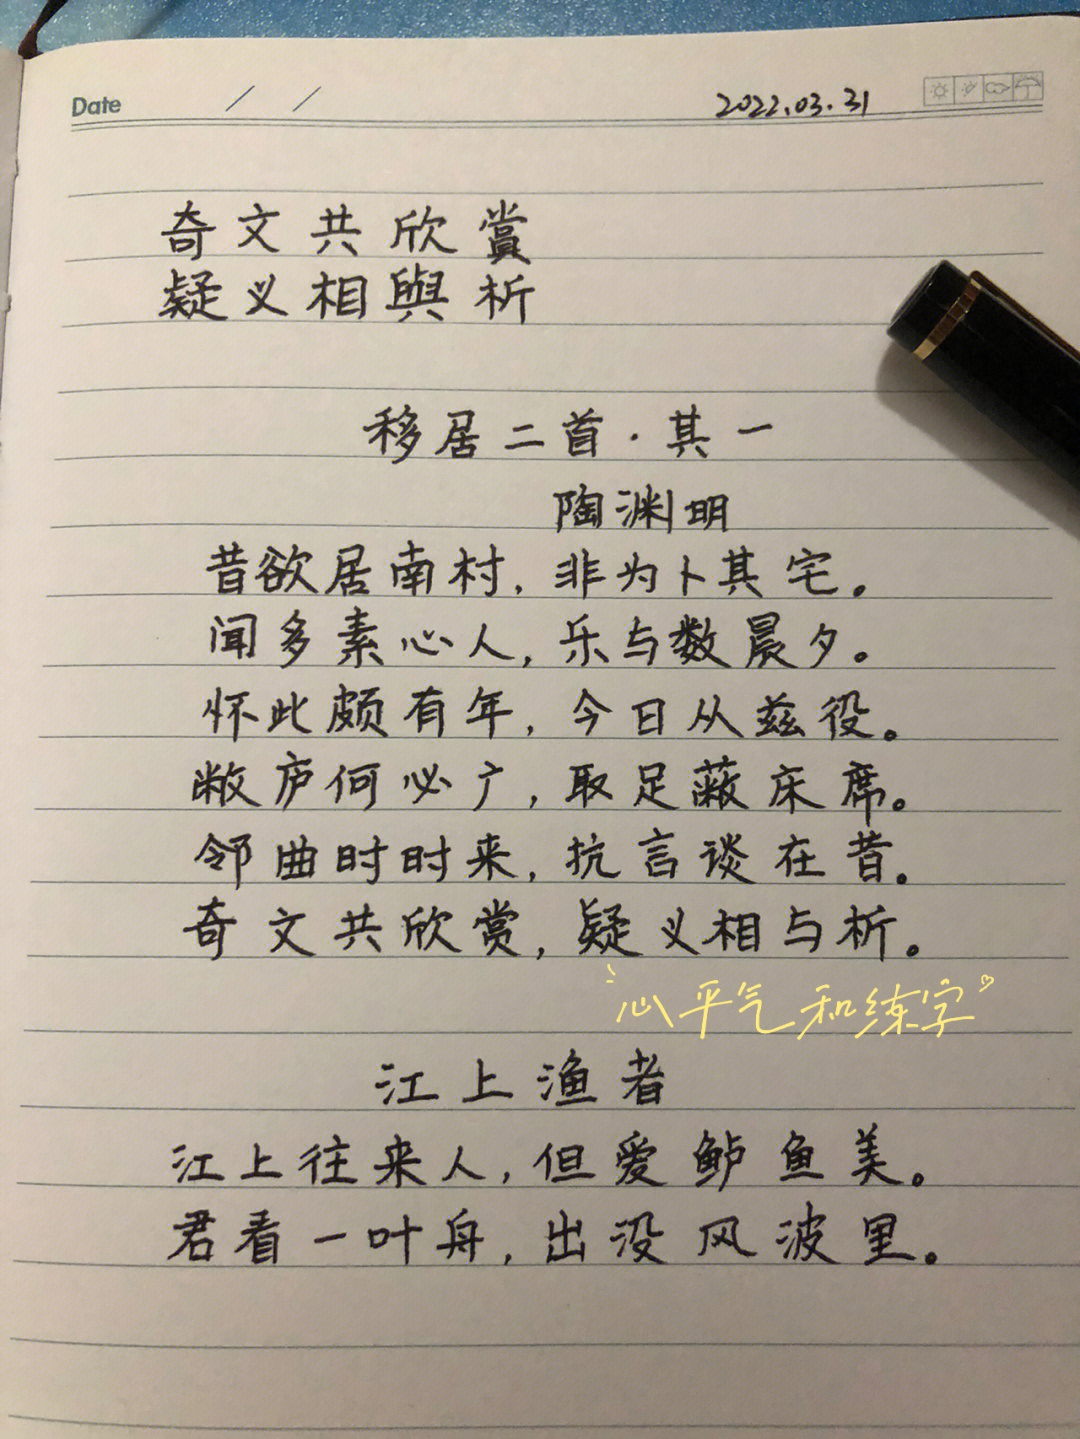 Date / / 2022.03.31
奇文共欣赏
疑义相與析
移居二首·其一
陶渊明
昔欲居南村，非为卜其宅。
闻多素心人，乐与数晨夕。
怀此颇有年，今日从兹役。
敝庐何必广，取足蔽床席。
邻曲时时来，抗言谈在昔。
奇文共欣赏，疑义相与析。
心平气和练字
江上渔者
江上往来人，但爱鲈鱼美。
君看一叶舟，出没风波里。